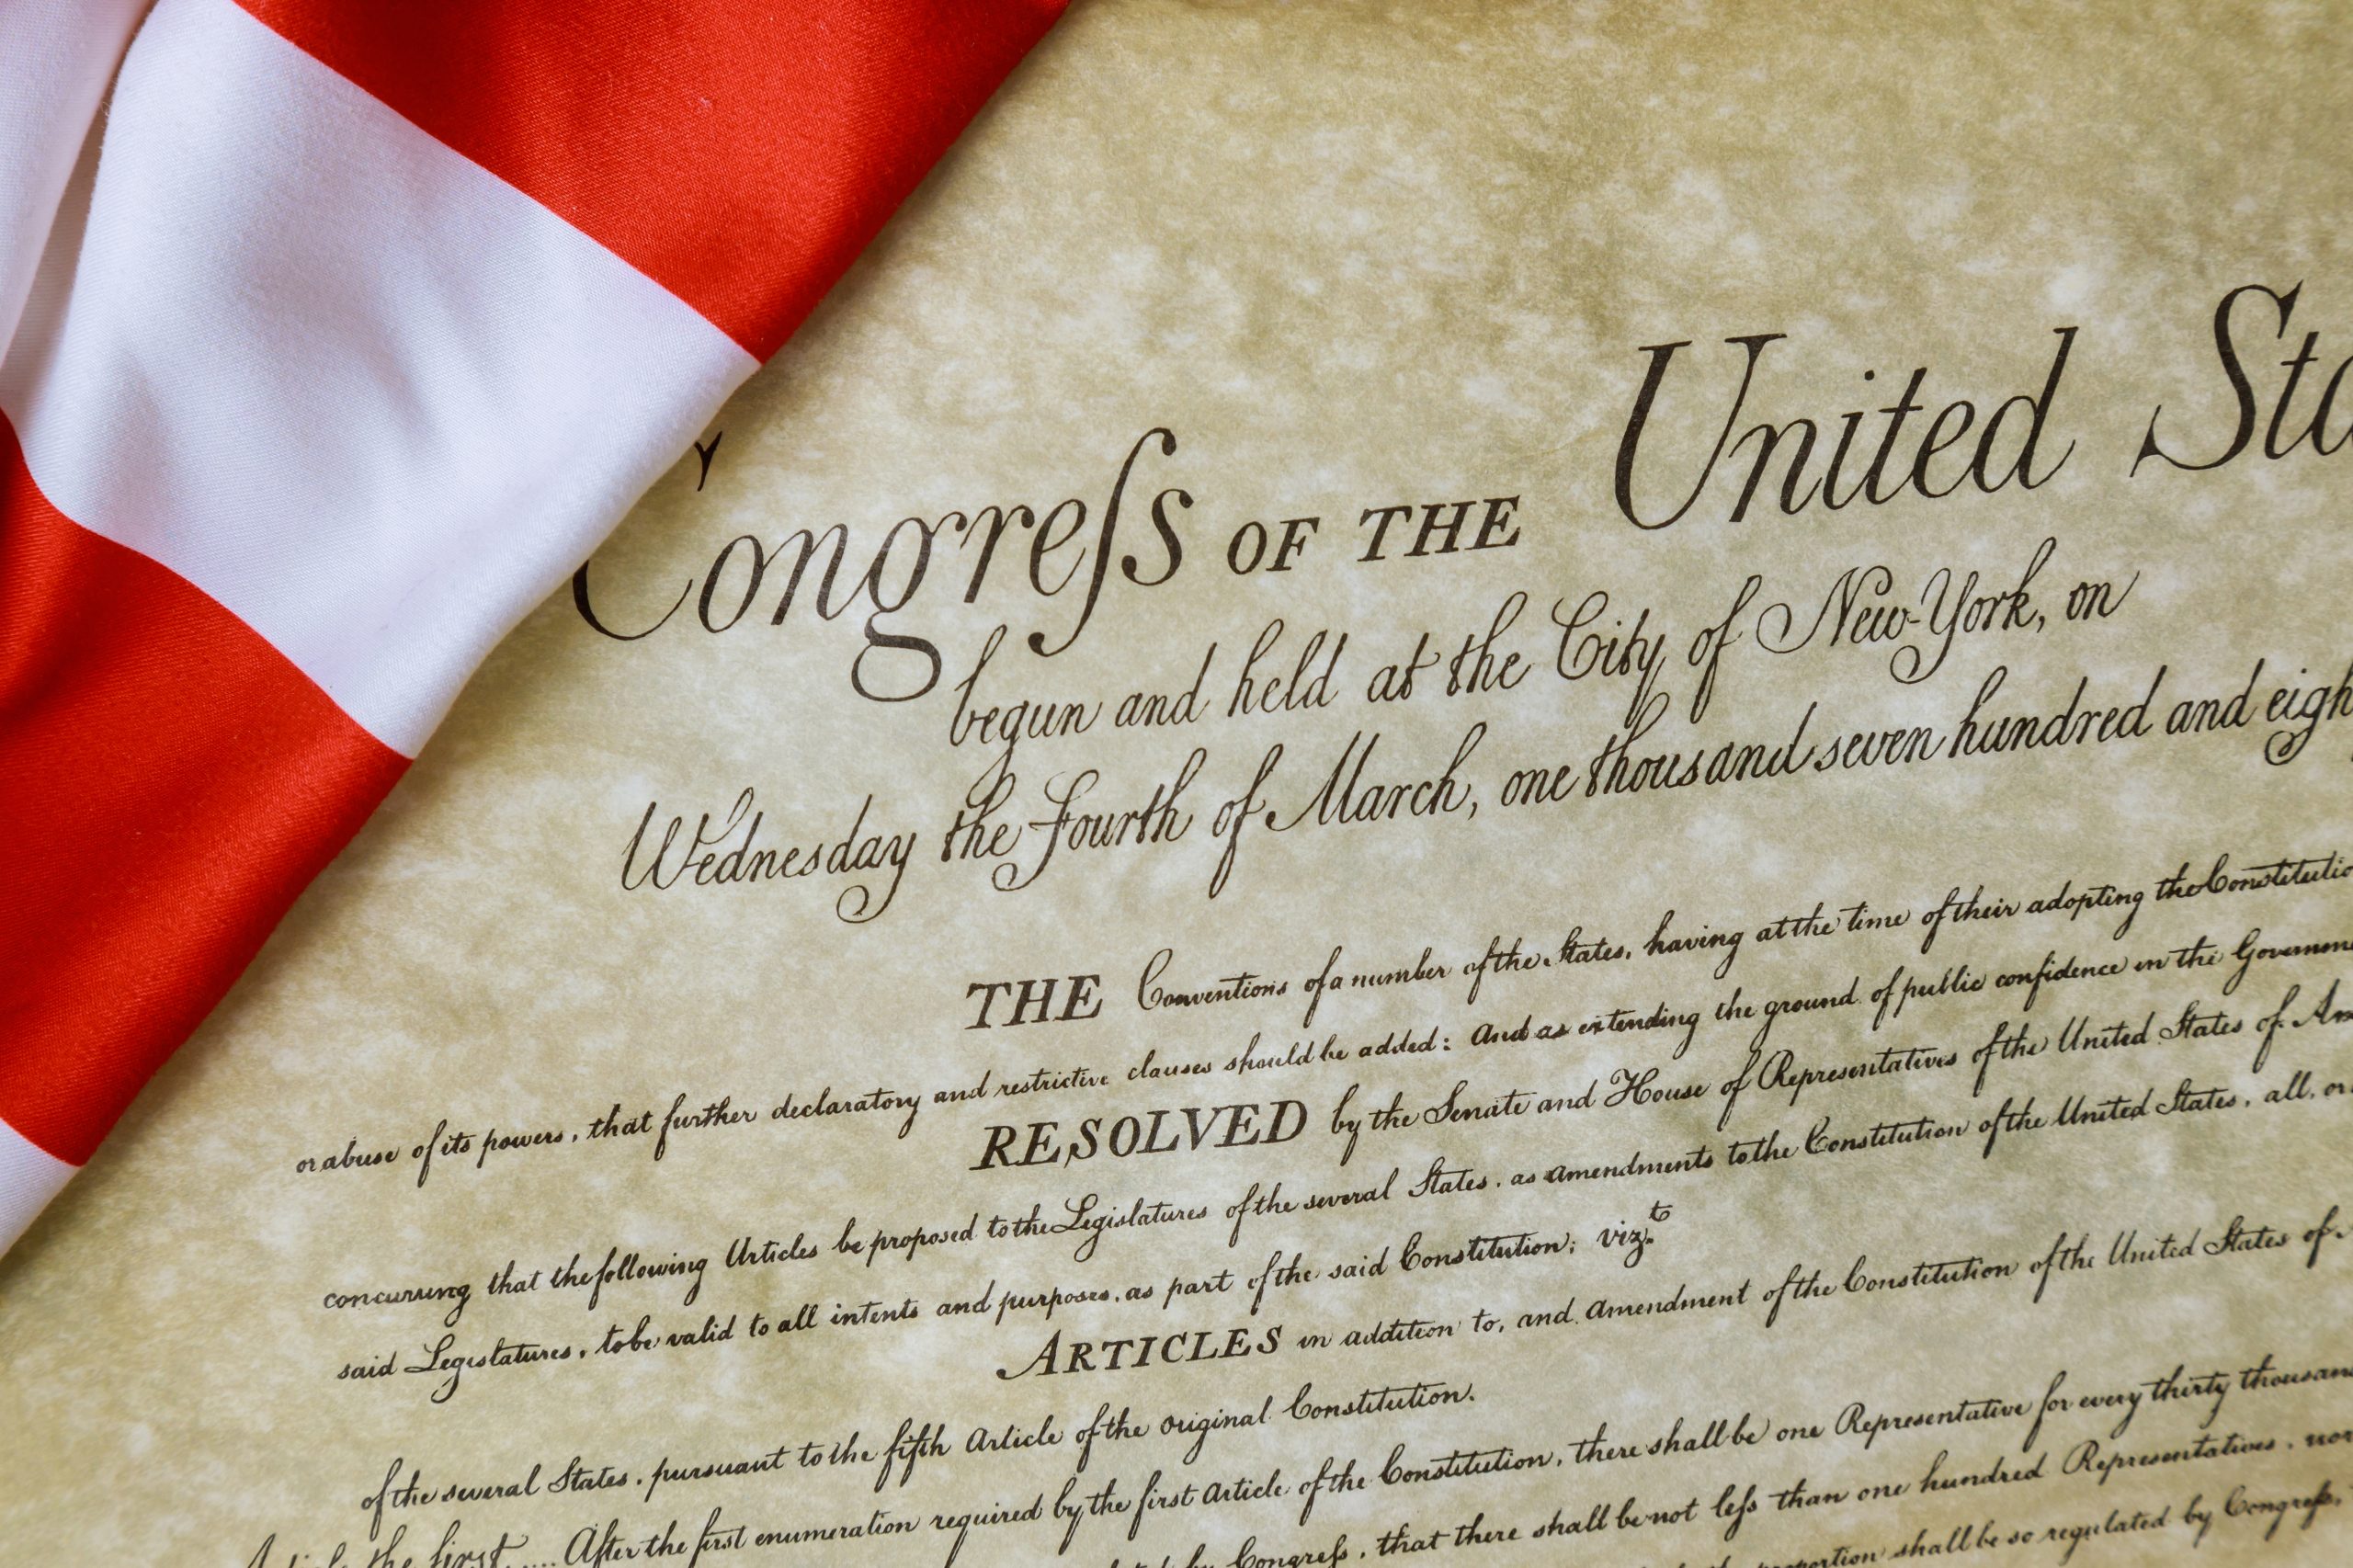 Congreſs OF THE United Sta
begun and held at the City of New-York, on
Wednesday the Fourth of March, one thousand seven hundred and eigh
THE Conventions of a number of the States, having at the time of their adopting the Constitutio
or abuse of its powers, that further declaratory and restrictive clauses should be added: And as extending the ground of public confidence in the Governme
RESOLVED by the Senate and House of Representatives of the United States of Am
concurring that the following Articles be proposed to the Legislatures of the several States, as Amendments to the Constitution of the United States, all, or
said Legislatures, to be valid to all intents and purposes, as part of the said Constitution; vizt.
ARTICLES in addition to, and Amendment of the Constitution of the United States of
of the several States, pursuant to the fifth Article of the Original Constitution.
the first..... After the first enumeration required by the first Article of the Constitution, there shall be one Representative for every thirty thousan
by Congreſs, that there shall be not leſs than one hundred Representatives, nor
proportion shall be so regulated by Congreſs,